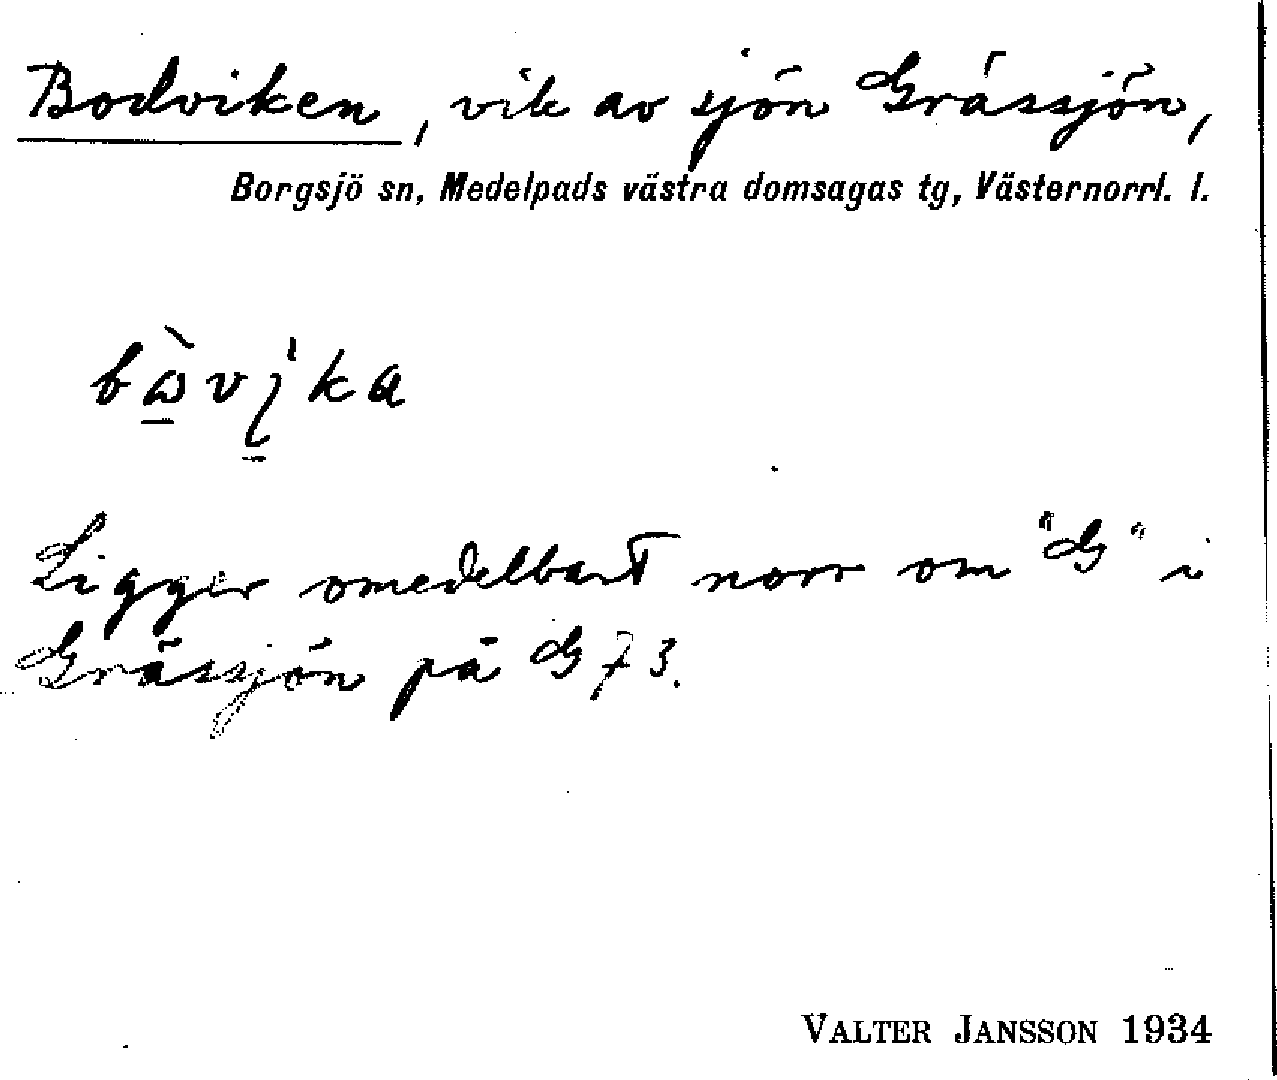 Bodviken, vik av sjön Gråssjön,
Borgsjö sn, Medelpads västra domsagas tg, Västernorrl. l.
Ligger omedelbart norr om "G" i
Gråssjön på G 73.
VALTER JANSSON 1934